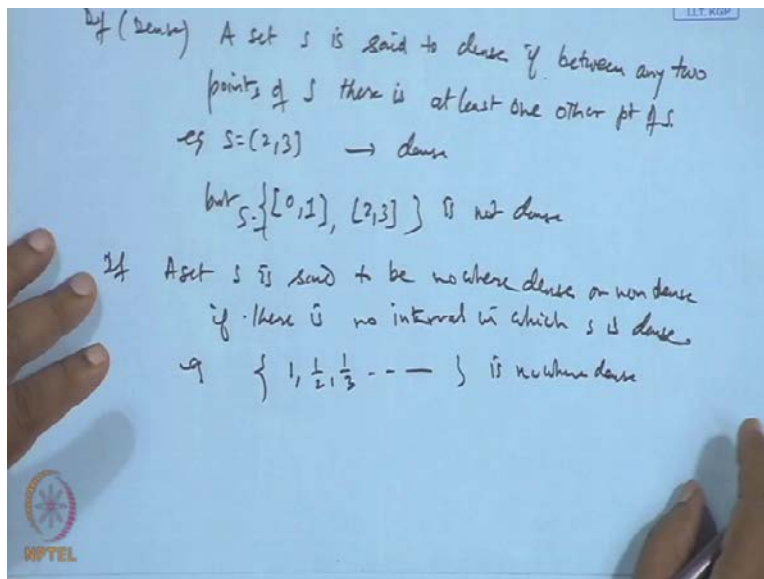 I.I.T. KGP
Df (Dense) A set S is said to dense if between any two
points of S there is at least one other pt of S.
eg S=(2,3] → dense
but S={[0,1], [2,3]} is not dense
Df A set S is said to be nowhere dense or non dense
if there is no interval in which S is dense.
eg { 1, 1/2, 1/3 - - — } is nowhere dense
NPTEL